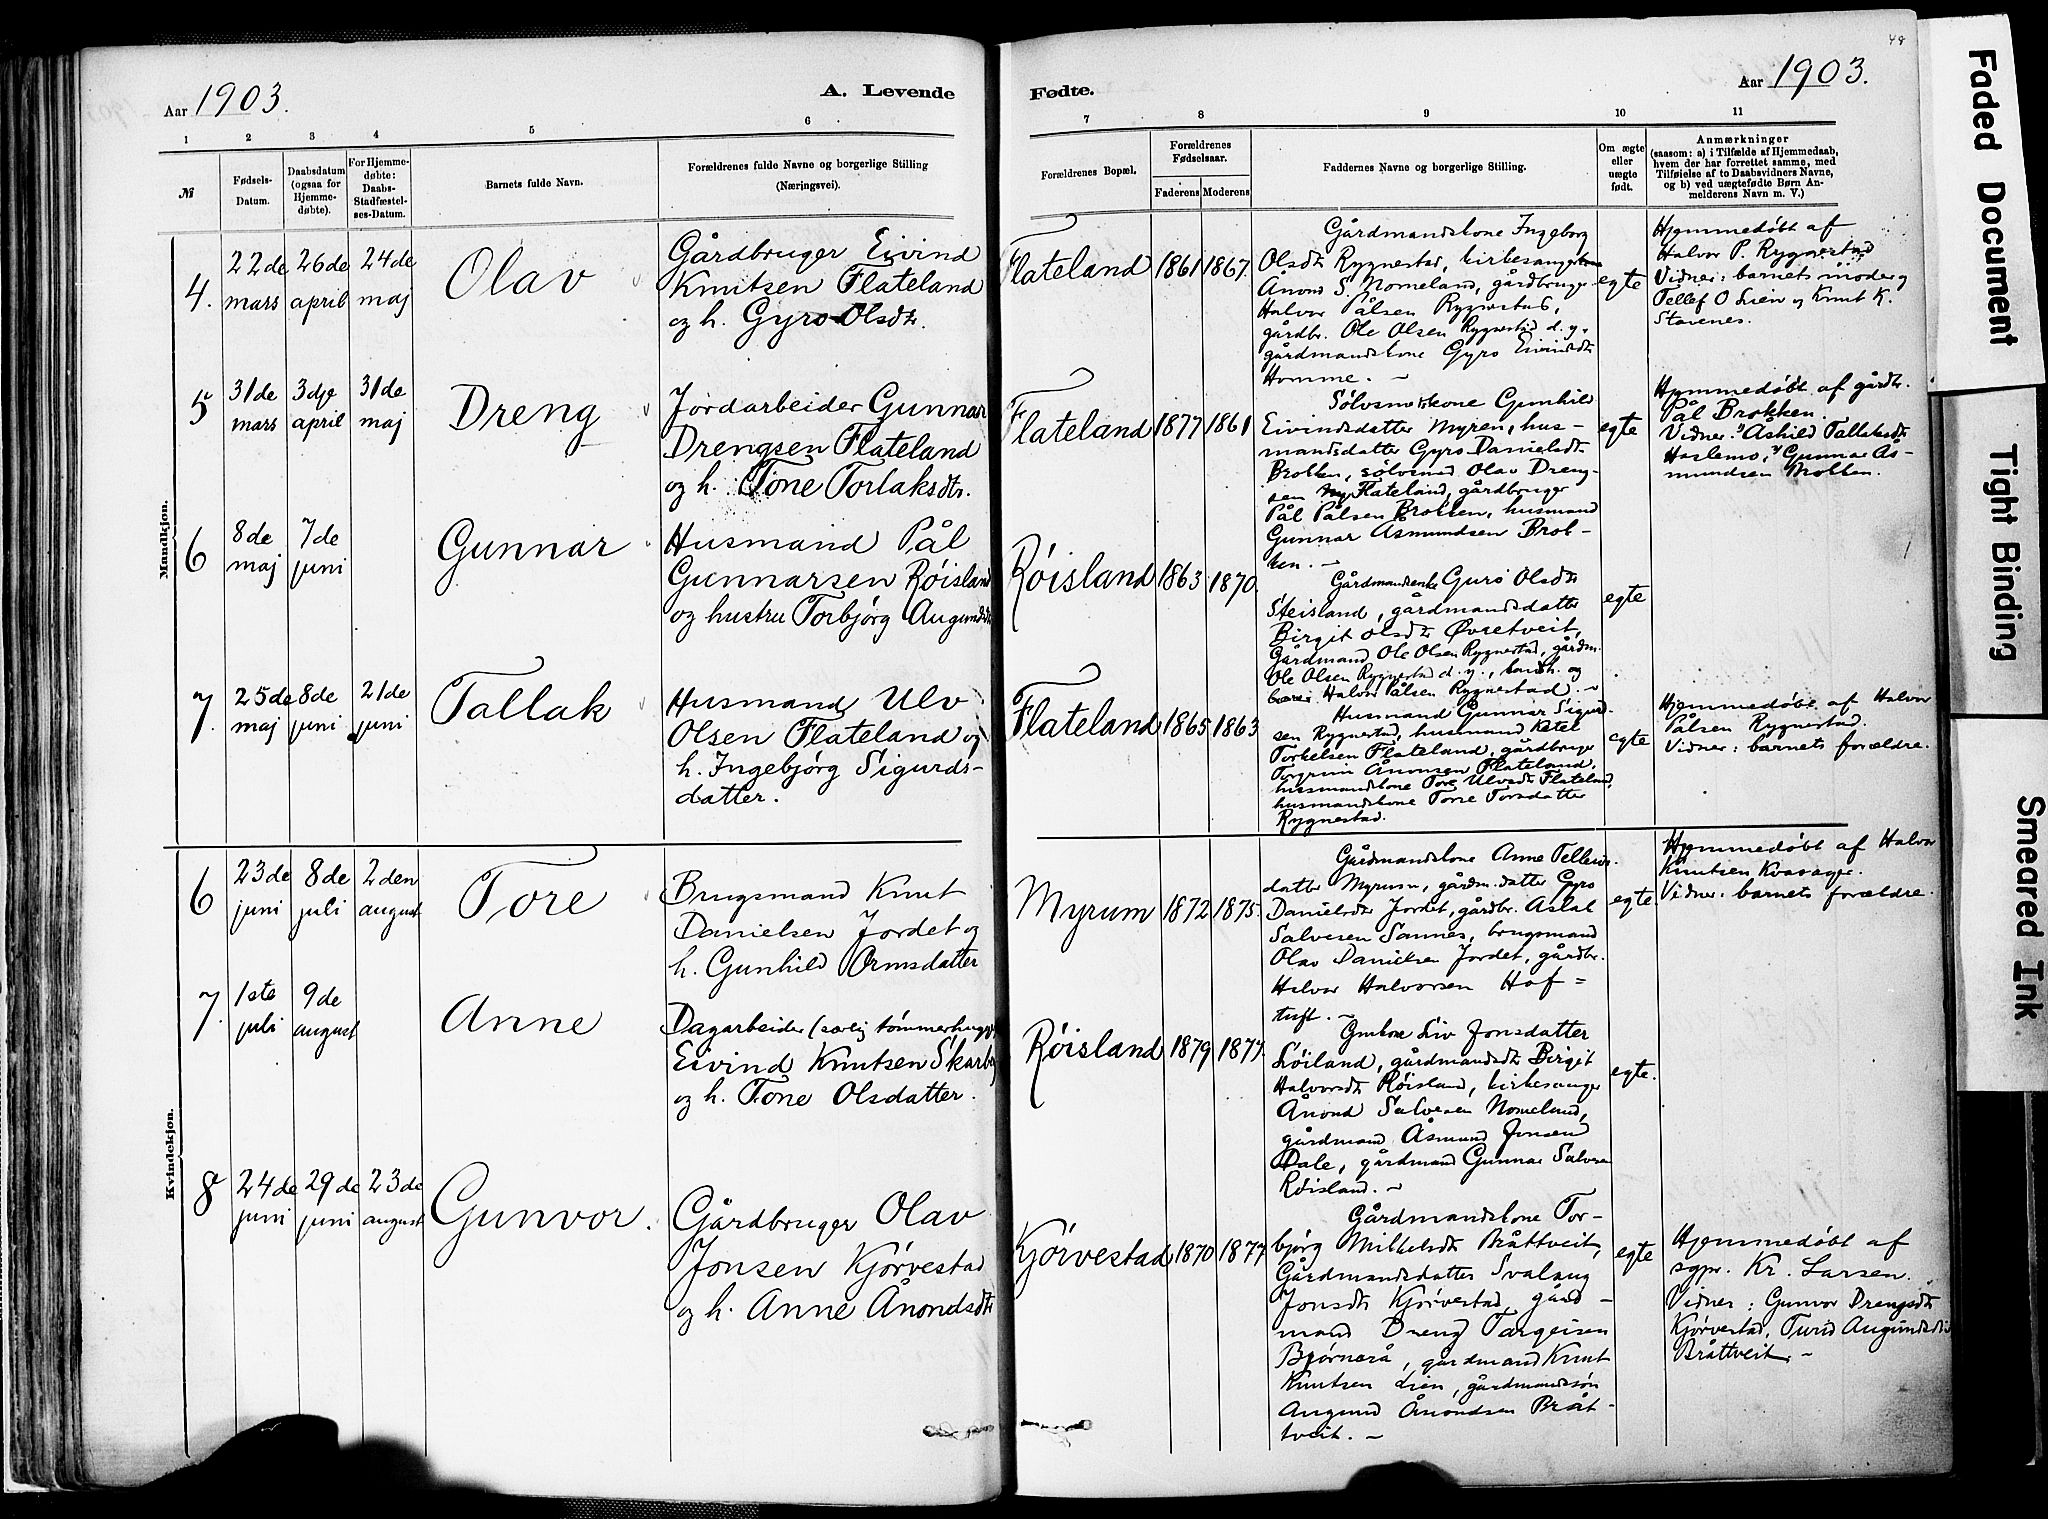 48
Aar 1903.
A. Levende
Fødte.
Aar 1903.
1 2 3 4 5 6
7 8 9 10 11
№
Fødsels-
Datum.
Daabsdatum
(ogsaa for
Hjemme-
døbte).
For Hjemme-
døbte:
Daabs-
Stadfæstel-
ses-Datum.
Barnets fulde Navn.
Forældrenes fulde Navne og borgerlige Stilling
(Næringsvei).
Forældrenes Bopæl.
Forældrenes
Fødselsaar.
Faderens
Moderens
Faddernes Navne og borgerlige Stilling.
Om ægte
eller
uægte
født.
Anmærkninger
(saasom: a) i Tilfælde af Hjemmedaab,
hvem der har forrettet samme, med
Tilføielse af to Daabsvidners Navne,
og b) ved uægtefødte Børn An-
melderens Navn m. V.)
Mandkjøn.
4.
22de
mars
26de
april
24de
maj
Olav
Gårdbruger Eivind
Knutsen Flateland
og h. Gyro Olsdtr.
Flateland
1861
1867.
Gårdmandskone Ingeborg
Olsdtr Rygnestad, kirkesanger
Ånond S. Nomeland, gårdbruger
Halvor Pålsen Rygnestad,
gårdbr. Ole Olsen Rygnestad d. y.
gårdmandskone Gyro Eivindsdtr
Homme. ~
egte
Hjemmedøbt af
Halvor P. Rygnestad
Vidner: barnets moder og
Tellef O Lien og Knut K.
Stavenes.
5
31de
mars
3dje
april
31de
maj
Dreng
Jordarbeider Gunnar
Drengsen Flateland
og h. Tone Torlaksdtr.
Flateland
1877
1861
Sølvsmedkone Gunhild
Eivindsdatter Myren, hus-
mandsdatter Gyro Danielsdtr
Brokken, sølvsmed Olav Dreng-
sen Flateland, gårdbruger
Pål Pålsen Brokken, husmand
Gunnar Åsmundsen Brok-
ken. ~
egte
Hjemmedøbt af gårdbr.
Pål Brokken.
Vidner: Åshild Tallaksdtr
Haslemo, Gunnar Ås-
mundsen Brokken.
6
8de
maj
7de
juni
Gunnar
Husmand Pål
Gunnarsen Røisland
og hustru Torbjørg Augundsdtr
Røisland
1863
1870.
Gårdmandsenke Guro Olsdtr
Steisland, gårdmandsdatter
Birgit Olsdtr Øvretveit,
Gårdmand Ole Olsen Rygnestad, gårdm.
Ole Olsen Rygnestad d. y., og
Halvor Pålsen Rygnestad. ~
egte
7.
25de
maj
8de
juni
21de
juni
Tallak
Husmand Ulv
Olsen Flateland og
h. Ingebjørg Sigurds-
datter.
Flateland
1865
1863
Husmand Gunnar Sigurd-
sen Rygnestad, husmand Ketel
Torkelsen Flateland, gårdbruger
Torgrim Ånonsen Flateland,
husmandskone Tore Ulvsdtr Flateland,
husmandskone Tone Torsdatter
Rygnestad.
egte
Hjemmedøbt af Halvor
Pålsen Rygnestad.
Vidner: barnets forældre.
Kvindekjøn.
6
23de
juni
8de
juli
2den
august
Tore
Brugsmand Knut
Danielsen Jordet og
h. Gunhild Ormsdatter
Myrum
1872
1875.
Gårdmandskone Anne Tellevs-
datter Myrum, gårdm.datter Gyro
Danielsdtr Jordet, gårdbr. Aslak
Salvesen Sannes, brugsmand
Olav Danielsen Jordet, gårdbr.
Halvor Halvorsen Hof-
tuft. ~
egte.
Hjemmedøbt af Halvor
Knutsen Kvasager.
Vidner: barnets forældre.
7.
1ste
juli
9de
august
Anne
Dagarbeider (særlig tømmerhugger)
Eivind Knutsen Skarberg
og h. Tone Olsdatter.
Røisland
1879
1877.
Gmkone Liv Jonsdatter
Løiland, gårdmandsdtr Birgit
Halvorsdtr Røisland, kirkesanger
Ånond Salvesen Nomeland,
gårdmand Åsmund Jonsen
Dale, gårdmand Gunnar Salvesen
Røisland. ~
egte.
8
24de
juni
29de
juni
23de
august
Gunvor.
Gårdbruger Olav
Jonsen Kjørvestad
og h. Anne Ånondsdtr
Kjørvestad
1870
1877
Gårdmandskone Tor-
bjørg Mikkelsdtr Bråttveit,
Gårdmandsdatter Svalaug
Jonsdtr Kjørvestad, gård-
mand Dreng Targeisen
Bjørnarå, gårdmand Knut
Knutsen Lien, gårdmandssøn
Augund Ånondsen Bråt-
tveit. ~
egte
Hjemmedøbt af
sgpr. Kr. Larsen.
Vidner: Gunvor Drengsdtr
Kjørvestad, Turid Augundsdtr
Bråttveit. ~
Faded Document
Tight Binding
Smeared Ink